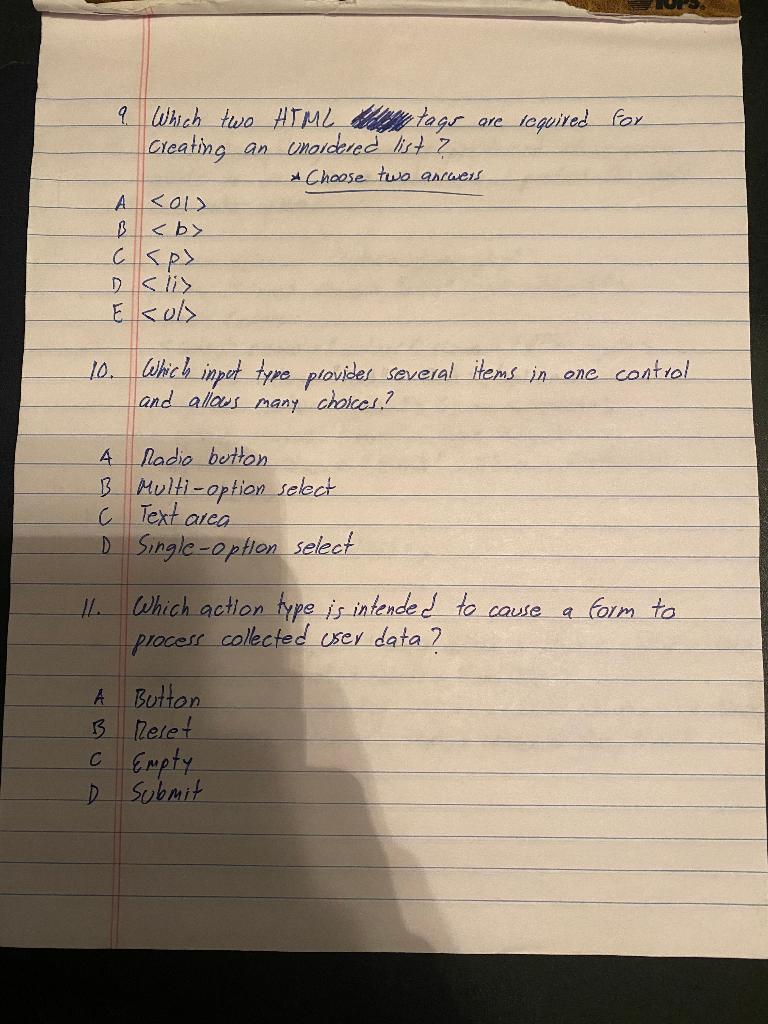 TOPS.
9. Which two HTML tags are required for
creating an unordered list?
* Choose two answers
A <ol>
B <b>
C <p>
D <li>
E <ul>
10. Which input type provides several items in one control
and allows many choices?
A Radio button
B Multi-option select
C Text area
D Single-option select
11. Which action type is intended to cause a form to
process collected user data?
A Button
B Reset
C Empty
D Submit